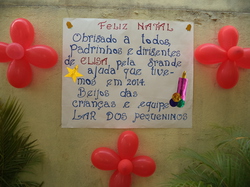 FELIZ NATAL
Obrigado a todos,
Padrinhos e dirigentes
de ELISA, pela grande
ajuda que tive-
mos em 2014.
Beijos das
crianças e equipe
LAR DOS PEQUENINOS